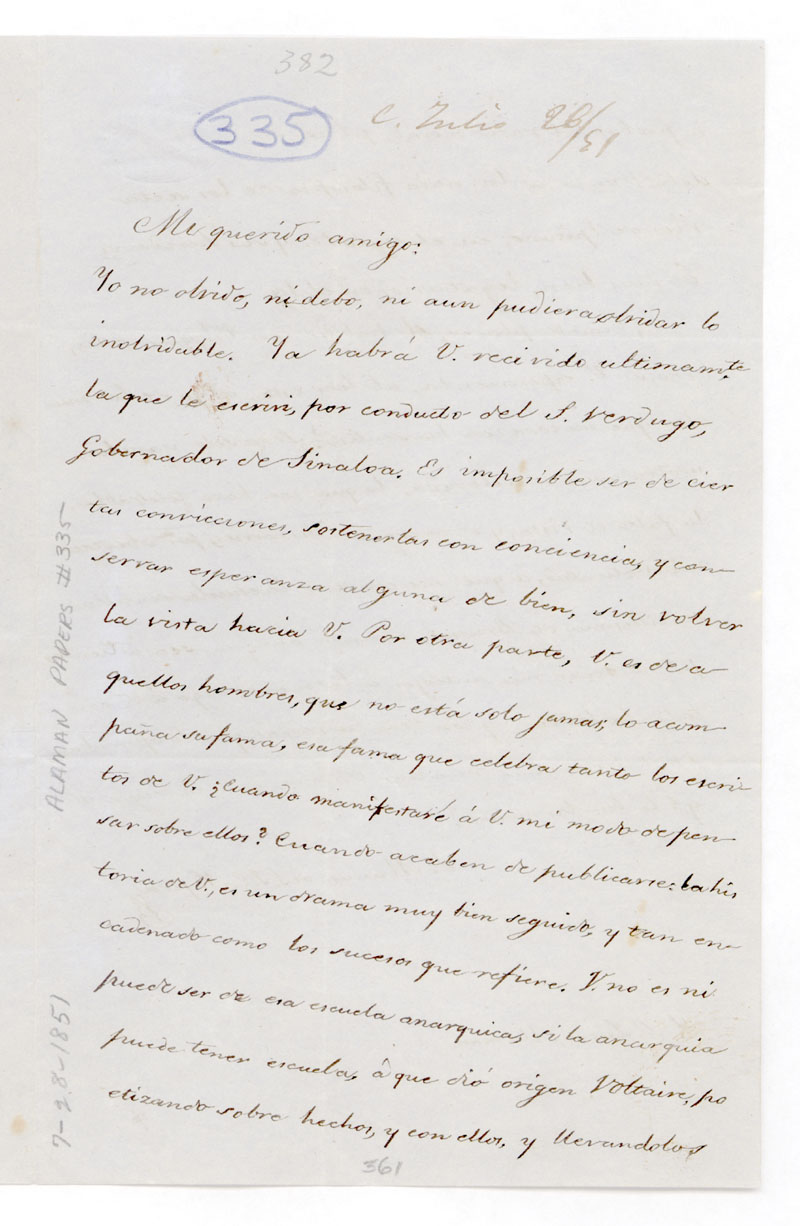 382
335
C. Julio 26/51
Mi querido amigo:
Yo no olvido, ni debo, ni aun pudiera olvidar lo
inolvidable. Ya habrá V. recivido ultimamte
la que le escriví, por conducto del S. Verdugo,
Gobernador de Sinaloa. Es imposible ser de cier
tas convicciones, sostenerlas con conciencia, y con-
servar esperanza alguna de bien, sin volver
la vista hacia V. Por otra parte, V. es de a
quellos hombres, que no está solo jamas; lo acom-
paña su fama, esa fama que celebra tanto los escri-
tos de V. ¿Cuando manifestaré á V. mi modo de pen-
sar sobre ellos? Cuando acaben de publicarse: la his
toria de V., es un drama muy bien seguido, y tan en-
cadenado como los sucesos que refiere. V. no es ni
puede ser de esa escuela anarquica, si la anarquia
puede tener escuela, á que dió origen Voltaire, po
etizando sobre hechos, y con ellos, y llevandolos
361
ALAMAN PAPERS #335
7-28-1851